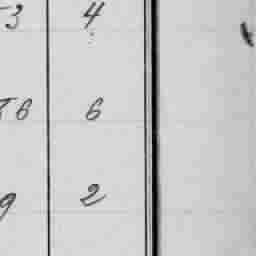 3 4
6 6
9 2